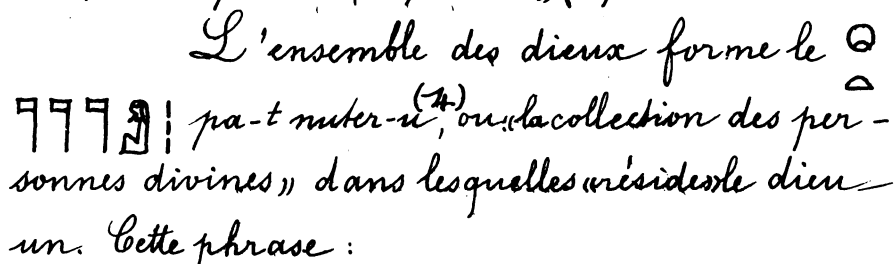 L'ensemble des dieux forme le
pa-t nuter-u(4), ou «la collection des per-
sonnes divines» dans lesquelles «réside» le dieu
un. Cette phrase :